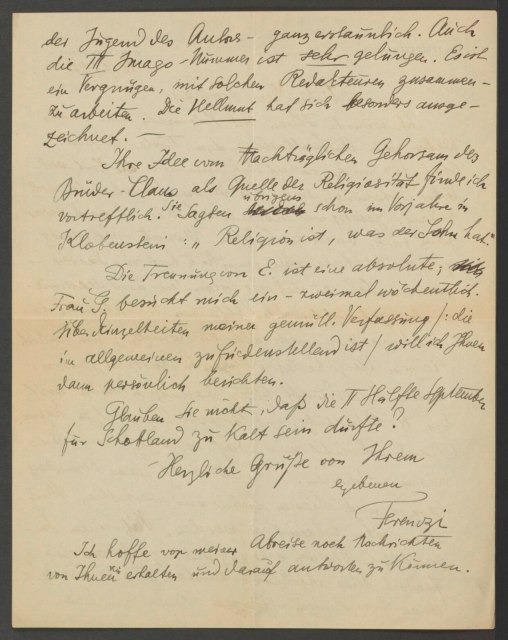 der Jugend des Autors - ganz erstaunlich. Auch
die III Imago-Nummer ist sehr gelungen. Es ist
ein Vergnügen, mit solchen Redakteuren zusammen-
zu arbeiten. Die Hellmut hat sich besonders ausge-
zeichnet. —
Ihre Idee vom Nachträglichen Gehorsam des
Brüder-Clans als Quelle der Religiosität finde ich
vortrefflich. Sie sagten übrigens schon im Vorjahre in
Klobenstein: „Religion ist, was der Sohn hat."
Die Trennung von E. ist eine absolute;
Frau G. besucht mich ein-zweimal wöchentlich.
Über Einzelheiten meiner gemütl. Verfassung /: die
im allgemeinen zufriedenstellend ist / will ich Ihnen
dann persönlich berichten.
Glauben Sie nicht, daß die II Hälfte September
für Schottland zu kalt sein dürfte?
Herzliche Grüße von Ihrem
ergebenen
Ferenczi
Ich hoffe vor meiner Abreise noch Nachrichten
von Ihnen zu erhalten und darauf antworten zu können.